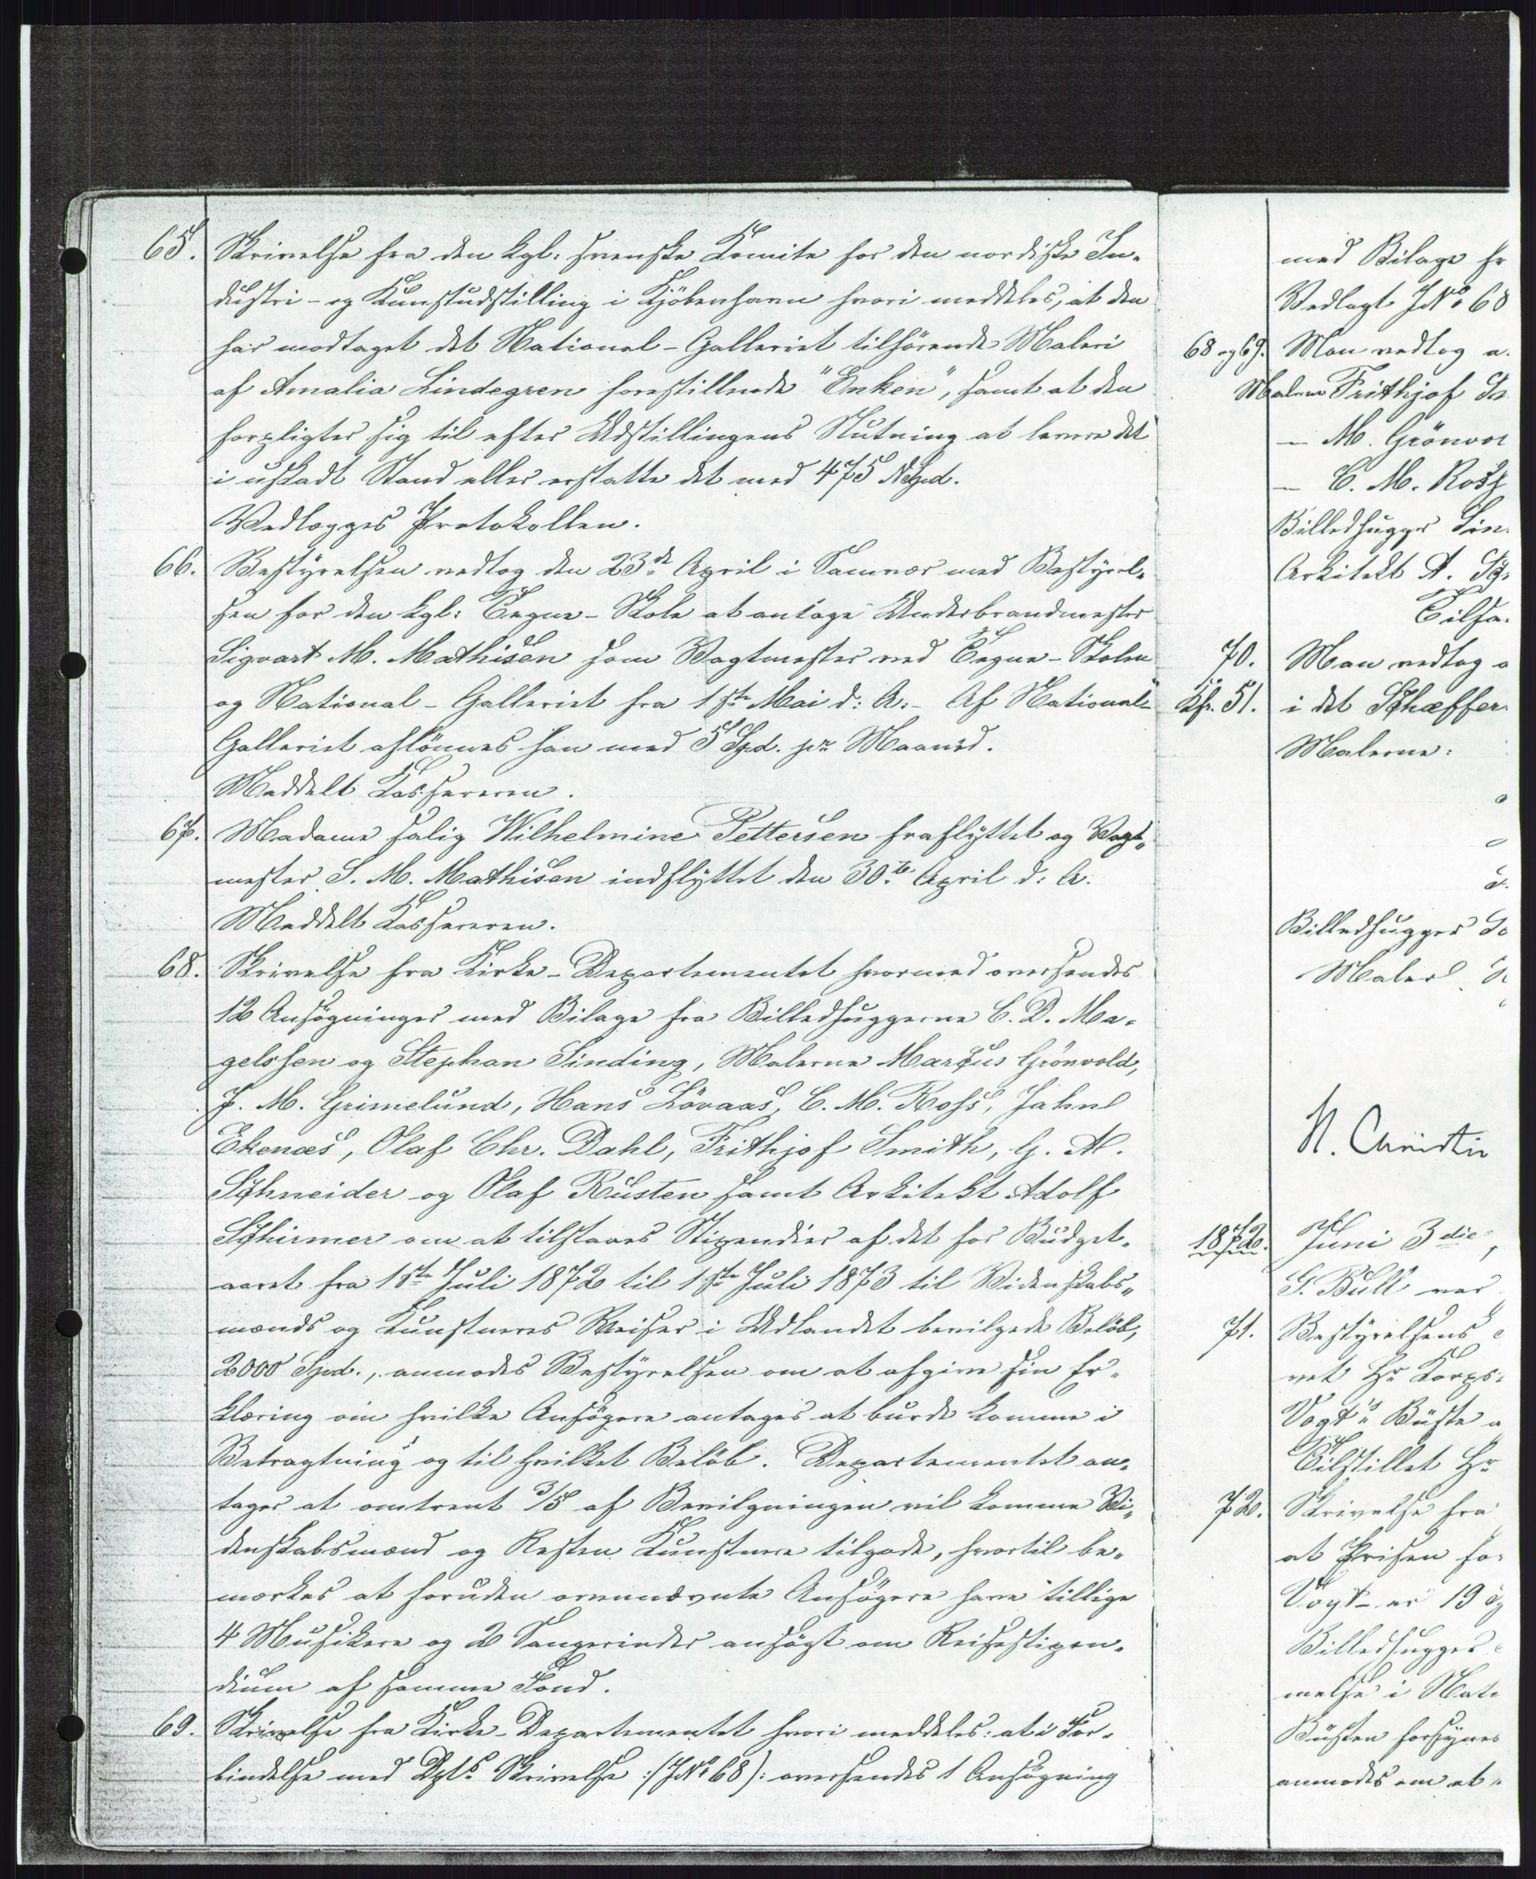 65. Skrivelse fra den kgl: svenske Komite for den nordiske In-
dustri- og Kunstudstilling i Kjöbenhavn hvori meddeles, at den
har modtaget det National-Galleriet tilhörende Maleri
af Amalia Lindegren forestillende "Enken", samt at den
forpligter sig til efter Udstillingens Slutning at levere det
i uskadt Stand eller erstatte det med 475 Spd.
Vedlægges Protokollen.
66. Bestyrelsen vedtog den 23de April i Samvær med Bestyrel-
sen for den kgl: Tegne-Skole at antage Underbrandmester
Sigvart M. Mathisen som Vagtmester ved Tegne-Skolen
og National-Galleriet fra 1ste Mai d: A:- Af National-
Galleriet aflönnes han med 5 Spd. pr Maaned.
Meddelt Kassereren.
67. Madame salig Wilhelmine Pettersen fraflyttet og Vagt-
mester S. M. Mathisen indflyttet den 30te April d: A.
Meddelt Kassereren.
68. Skrivelse fra Kirke-Departementet hvormed oversendes
12 Ansögninger med Bilage fra Billedhuggerne C. D. Ma-
gelssen og Stephan Sinding, Malerne Marcus Grönvold,
J. M. Grimelund, Hans Lövaas, C. M. Ross, Jahn
Ekenæs, Olaf Chr. Dahl, Frithjof Smith, G. A.
Schneider og Olaf Rusten samt Arkitekt Adolf
Schirmer om at tilstaaes Stipendier af det for Budget-
aaret fra 1ste Juli 1872 til 1ste Juli 1873 til Videnskabs-
mænds og Kunstneres Reiser i Udlandet bevilgede Belöb,
2000 Spd., anmodes Bestyrelsen om at afgive sin Er-
klæring om hvilke Ansögere antages at burde komme i
Betragtning og til hvilket Belöb. Departementet an-
tager at omtrent 3/5 af Bevilgningen vil komme Vi-
denskabsmænd og Resten Kunstnere tilgode, hvortil be-
mærkes at foruden ovennævnte Ansögere have tillige
4 Musikere og 2 Sangerinder ansögt om Reisestipen-
dium af samme Fond.
69. Skrivelse fra Kirke-Departementet hvori meddeles: at i For-
bindelse med Dpts Skrivelse :(JNo 68): oversendes 1 Ansögning
med Bilage fr
Vedlagt JNo 68
68 og 69. Man vedtog a
Malerne Frithjof S
— M. Grönvol
— C. M. Ross
Billedhugger Sin
Arkitekt A. Sch
Tilsa
70. Man vedtog a
Kfr. 51. i det Schæffer
Malerne:
Billedhugger
Maler
H. Christi
1872. Juni 3die,
G. Bull var
71. Bestyrelsens
vet Hr Korps
Vogt's Büste a
Tilstillet Hr
72. Skrivelse fra
at Prisen for
Vogt er 19
Billedhugger
melse i Nati
Büsten forsynes
anmodes om at